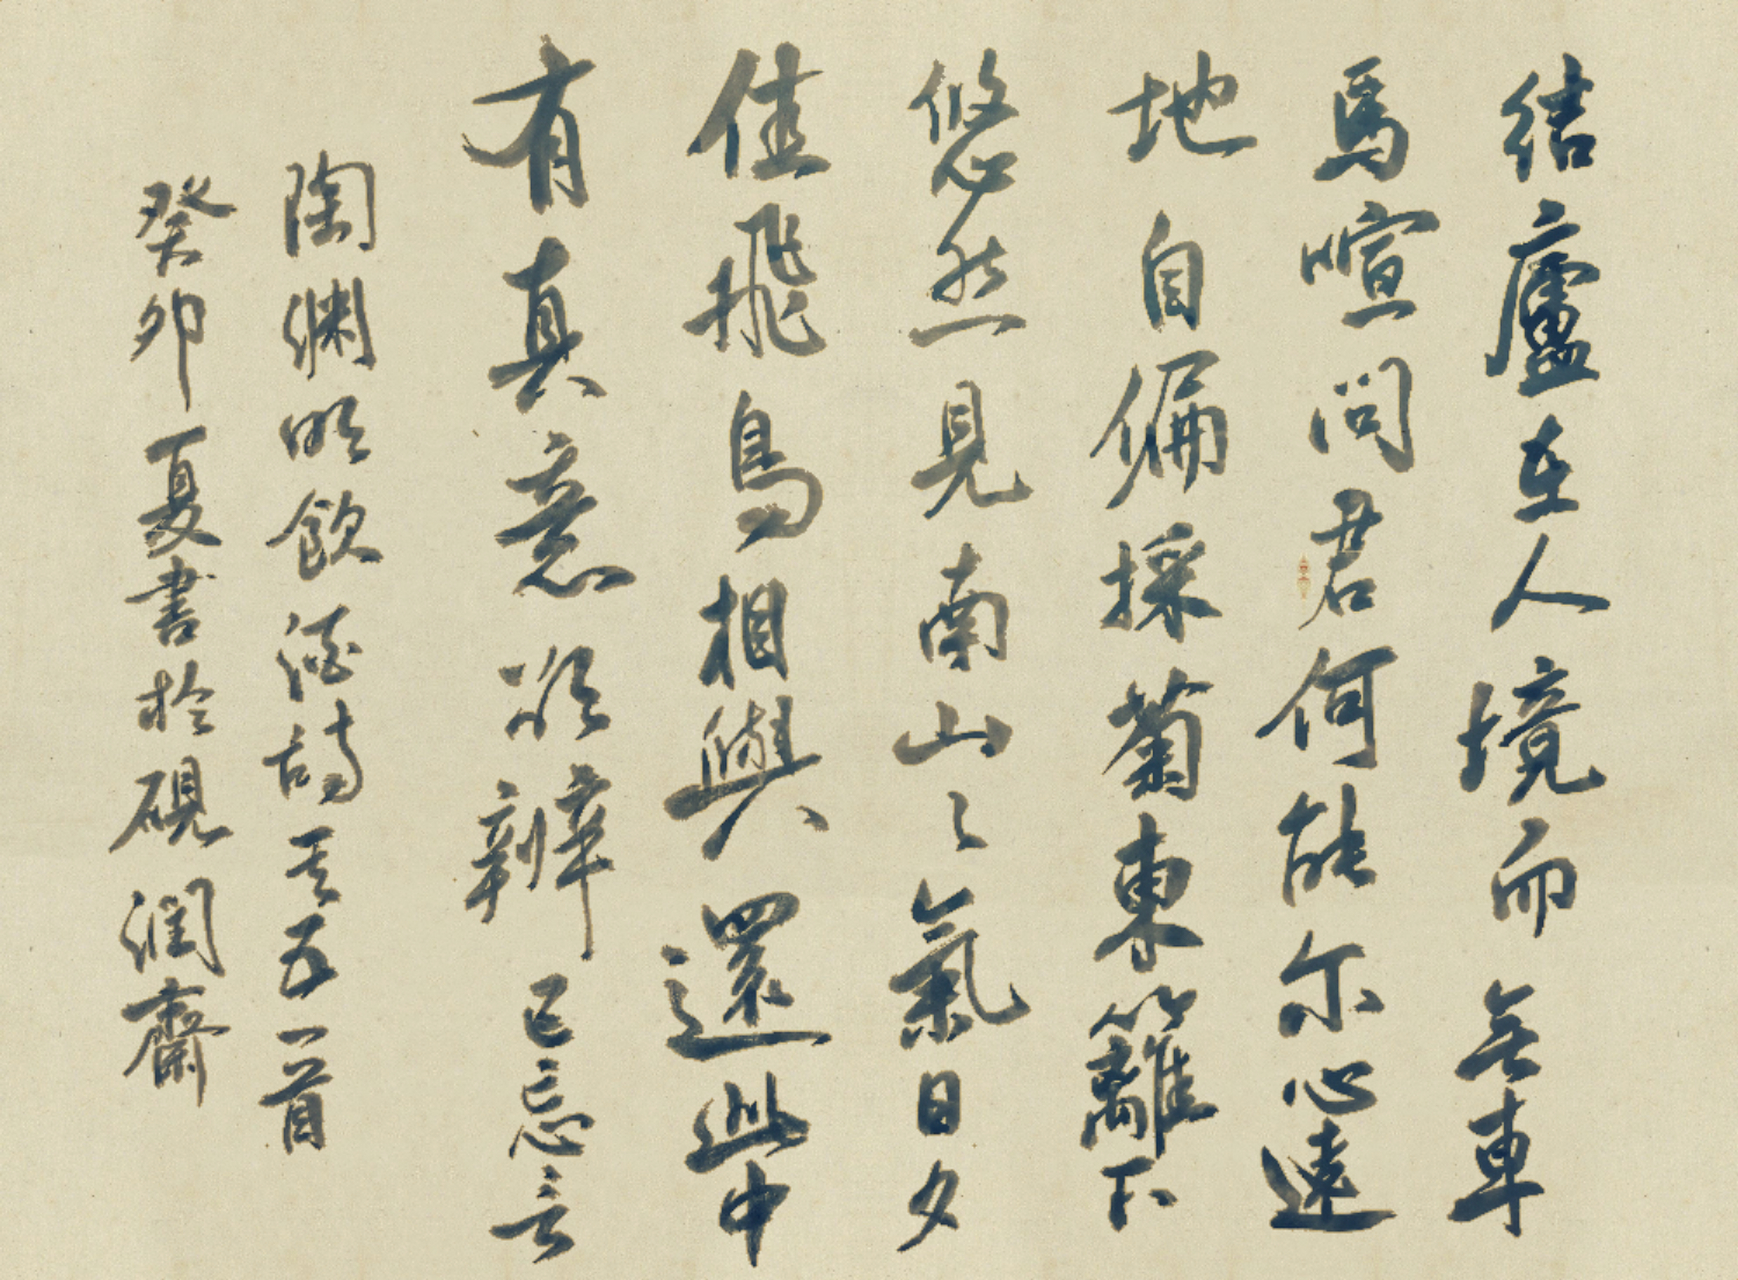 结廬在人境而無車
馬喧问君何能尔心遠
地自偏採菊東籬下
悠然見南山々氣日夕
佳飛鳥相與還此中
有真意欲辨已忘言
陶渊明飲酒詩其五一首
癸卯夏書於硯润齋